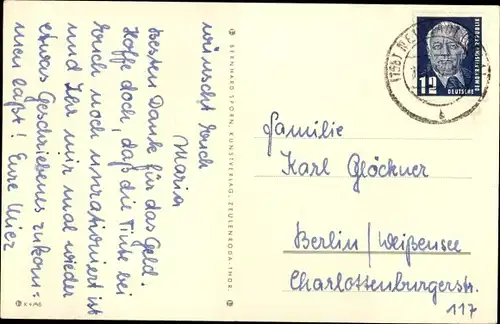 wünscht Euch
Maria
Besten Dank für das Geld.
Hoffe doch, daß die Tinte bei
Euch noch unrationiert ist
und Ihr mir mal wieder
etwas Geschriebenes zukom-
men laßt! Eure
BERNHARD SPORN, KUNSTVERLAG, ZEULENRODA-THÜR.
K 4/46
12
DEUTSCHE
Familie
Karl Glöckner
Berlin/Weißensee
Charlottenburgerstr.
117